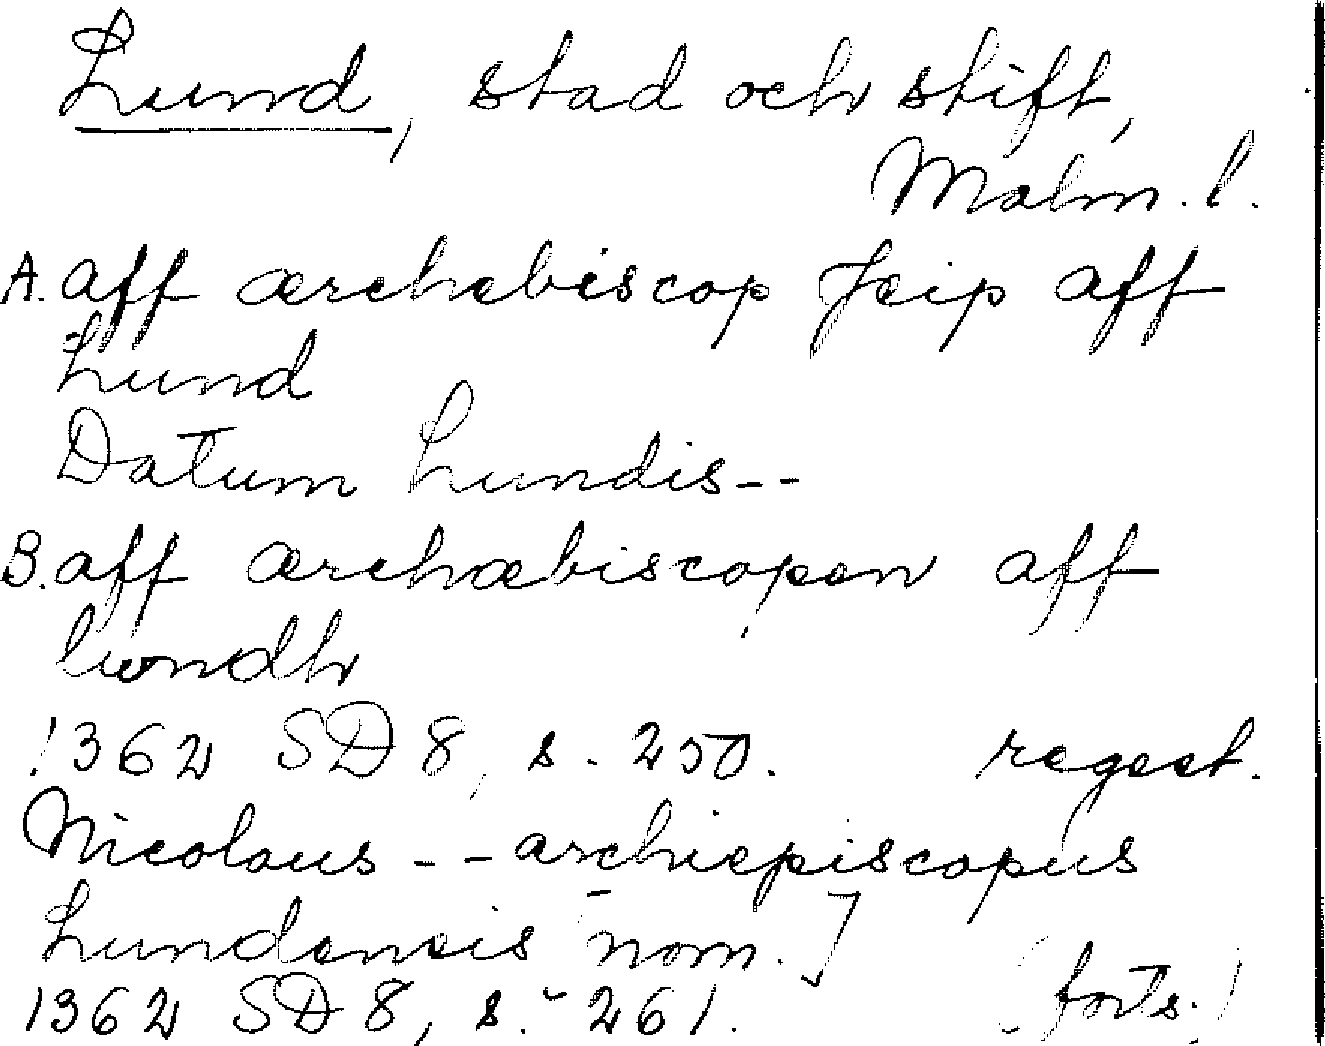 Lund, stad och stift,
Malm. l.
A. aff ærchebiscop Jeip aff
Lund
Datum Lundis--
B. aff ærchæbiscopen aff
lwndh
1362 SD 8, s. 250. regest.
Nicolaus -- archiepiscopus
Lundensis [nom.]
1362 SD 8, s. 261. (forts.)